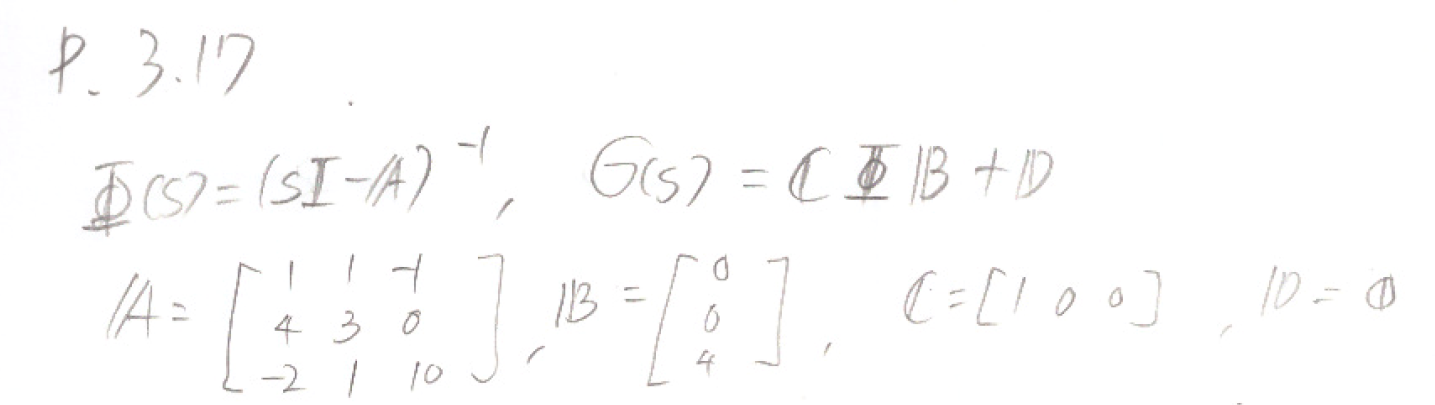 P. 3.17
Φ(s) = (sI - A)⁻¹, G(s) = CΦB + D
A = [1 1 -1; 4 3 0; -2 1 10], B = [0; 0; 4], C = [1 0 0], D = 0